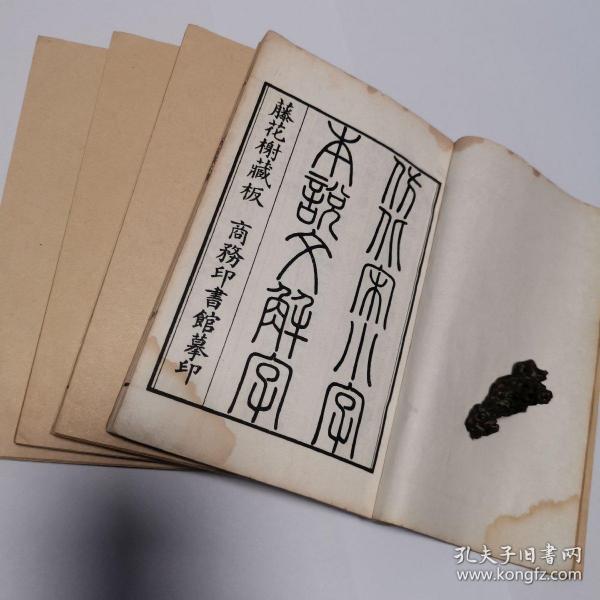 仿北宋小字
本說文解字
藤花榭藏板 商務印書館摹印
孔夫子旧書网
www.kongfz.com